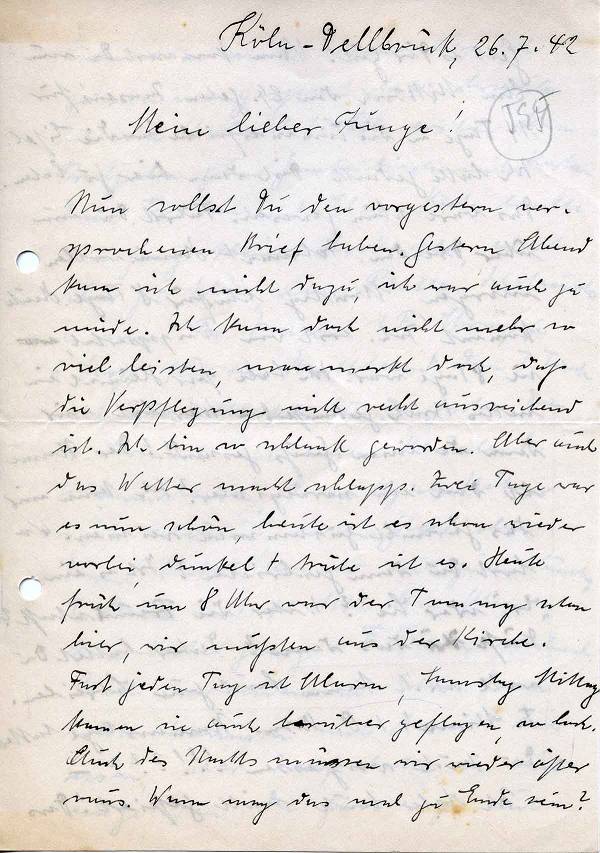 Köln-Dellbrück, 26.7.42
Mein lieber Junge!
Nun sollst Du den vorgestern ver-
sprochenen Brief haben. Gestern Abend
kam ich nicht dazu, ich war auch zu
müde. Ich kann doch nicht mehr so
viel leisten, man merkt doch, daß
die Verpflegung nicht recht ausreichend
ist. Ich bin so schlank geworden. Aber auch
das Wetter macht schlapp. Zwei Tage war
es nun schön heute ist es schon wieder
vorbei, dunkel + trübe ist es. Heute
früh um 8 Uhr war der Tommy schon
hier, wir mußten aus der Kirche.
Fast jeden Tag ist Alarm, Samstag Mittag
kamen sie auch darüber geflogen, so hoch.
Auch des Nachts müssen wir wieder öfter
raus. Wann mag das mal zu Ende sein?